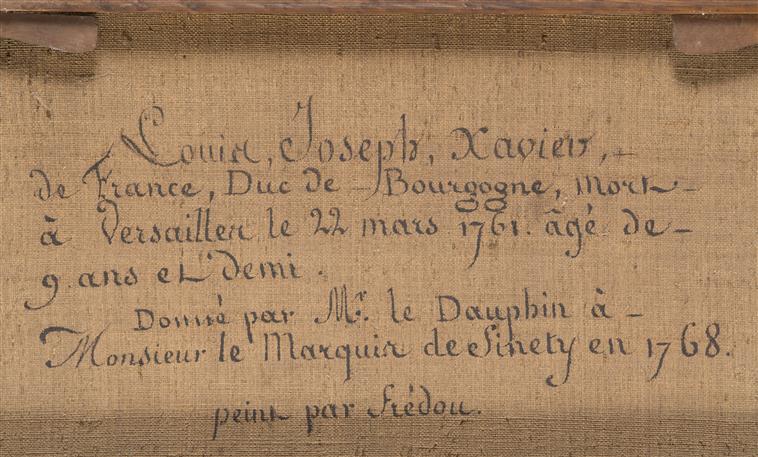 Louis, Joseph, Xavier, -
de France, Duc de - Bourgogne, mort -
à Versailles le 22 mars 1761. âgé de -
9 ans et demi.
Donné par Mr. le Dauphin à -
Monsieur le Marquis de Sinety en 1768.
peint par Frédou.